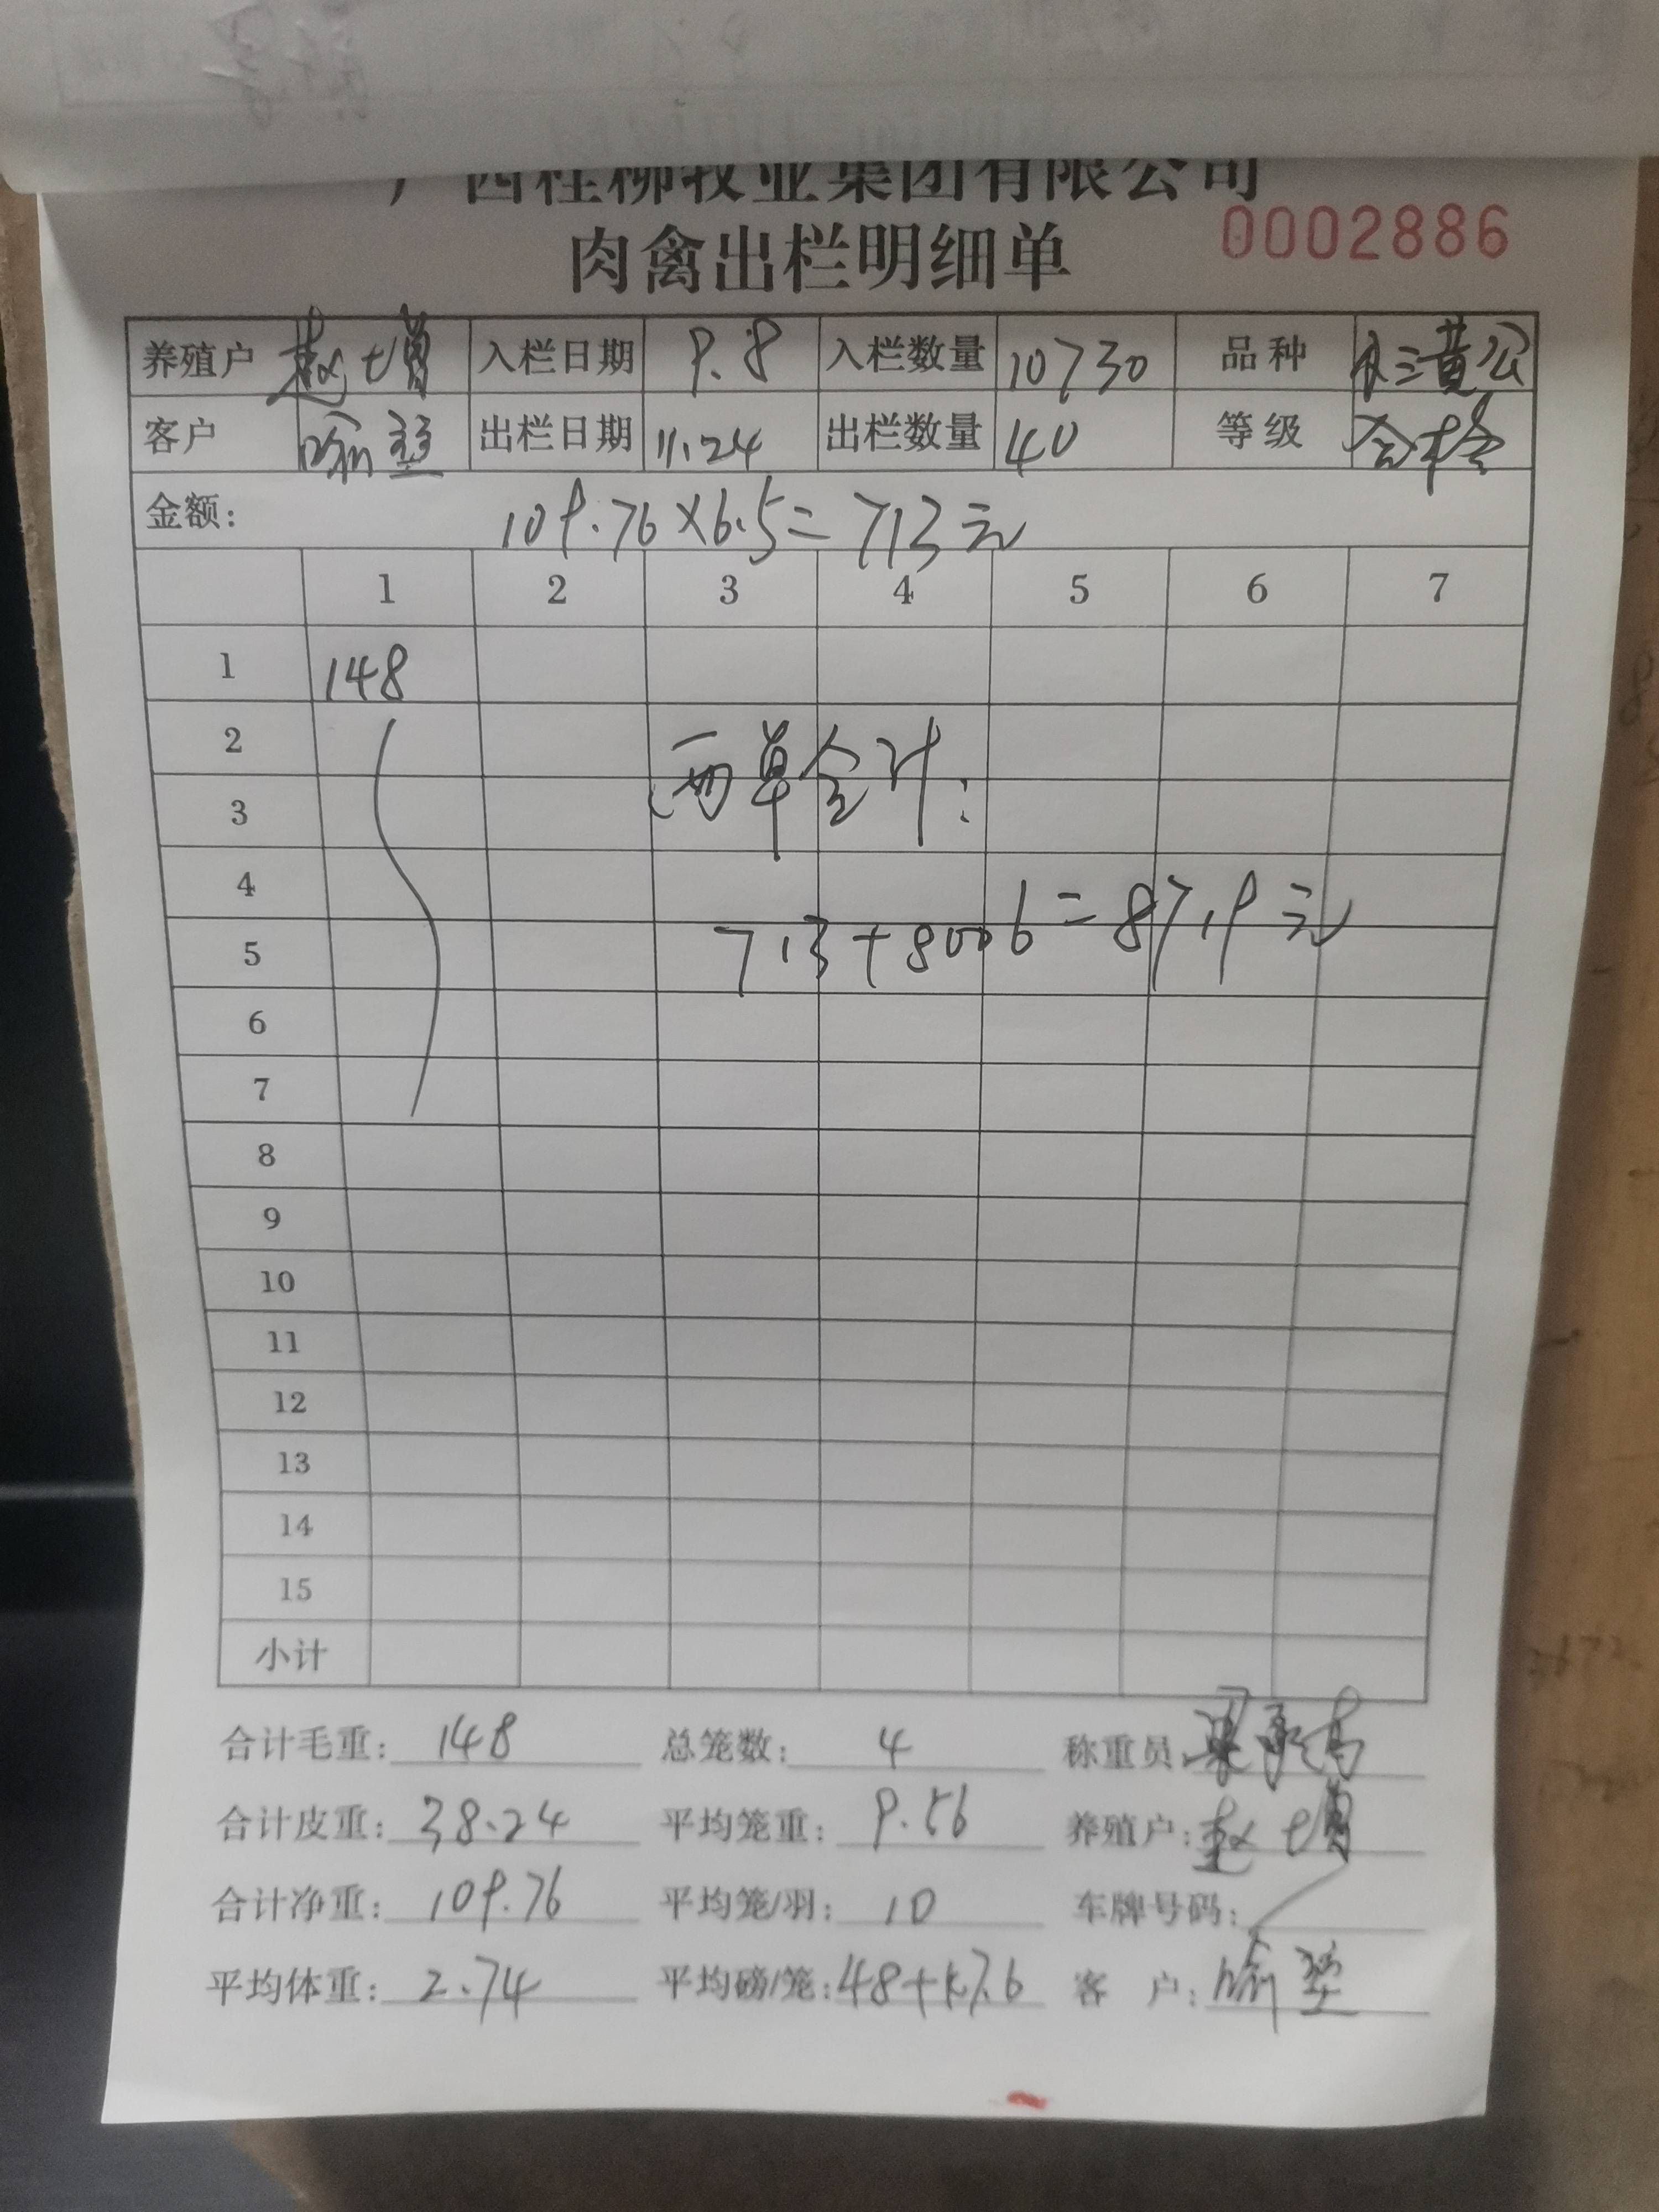 广西桂柳牧业集团有限公司
肉禽出栏明细单 0002886
养殖户 赵增 入栏日期 9.8 入栏数量 10730 品种 三黄公
客户 喻 出栏日期 11.24 出栏数量 40 等级 合格
金额: 109.76×6.5=713元
1 2 3 4 5 6 7
1 148
2
两单合计:
3
4
713+8006=8719元
5
6
7
8
9
10
11
12
13
14
15
小计
合计毛重: 148 总笼数: 4 称重员:
合计皮重: 38.24 平均笼重: 9.56 养殖户: 赵增
合计净重: 109.76 平均笼/羽: 10 车牌号码:
平均体重: 2.74 平均磅/笼: 客 户: 喻